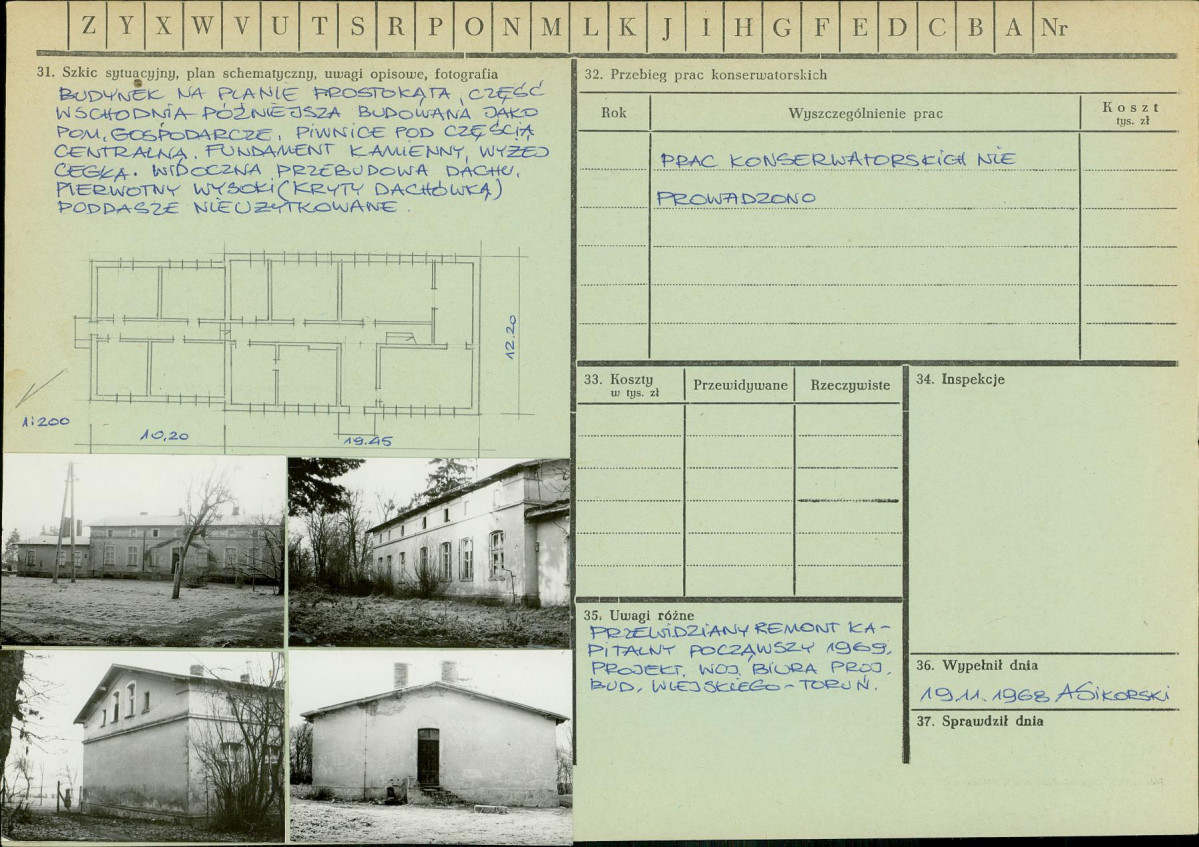 Z Y X W V U T S R P O N M L K J I H G F E D C B A Nr
31. Szkic sytuacyjny, plan schematyczny, uwagi opisowe, fotografia
BUDYNEK NA PLANIE PROSTOKĄTA, CZĘŚĆ
WSCHODNIA PÓŹNIEJSZA BUDOWANA JAKO
POM. GOSPODARCZE. PIWNICE POD CZĘŚCIĄ
CENTRALNĄ. FUNDAMENT KAMIENNY, WYŻEJ
CEGŁA. WIDOCZNA PRZEBUDOWA DACHU,
PIERWOTNY WYSOKI (KRYTY DACHÓWKĄ)
PODDASZE NIEUŻYTKOWANE.
12.20
1:200
10,20
19.45
32. Przebieg prac konserwatorskich
Rok
Wyszczególnienie prac
Koszt
tys. zł
PRAC KONSERWATORSKICH NIE
PROWADZONO
33. Koszty
w tys. zł
Przewidywane
Rzeczywiste
34. Inspekcje
35. Uwagi różne
PRZEWIDZIANY REMONT KA-
PITALNY POCZĄWSZY 1969.
PROJEKT. WOJ. BIURA PROJ.
BUD. WIEJSKIEGO - TORUŃ.
36. Wypełnił dnia
19.11.1968 ASIKORSKI
37. Sprawdził dnia